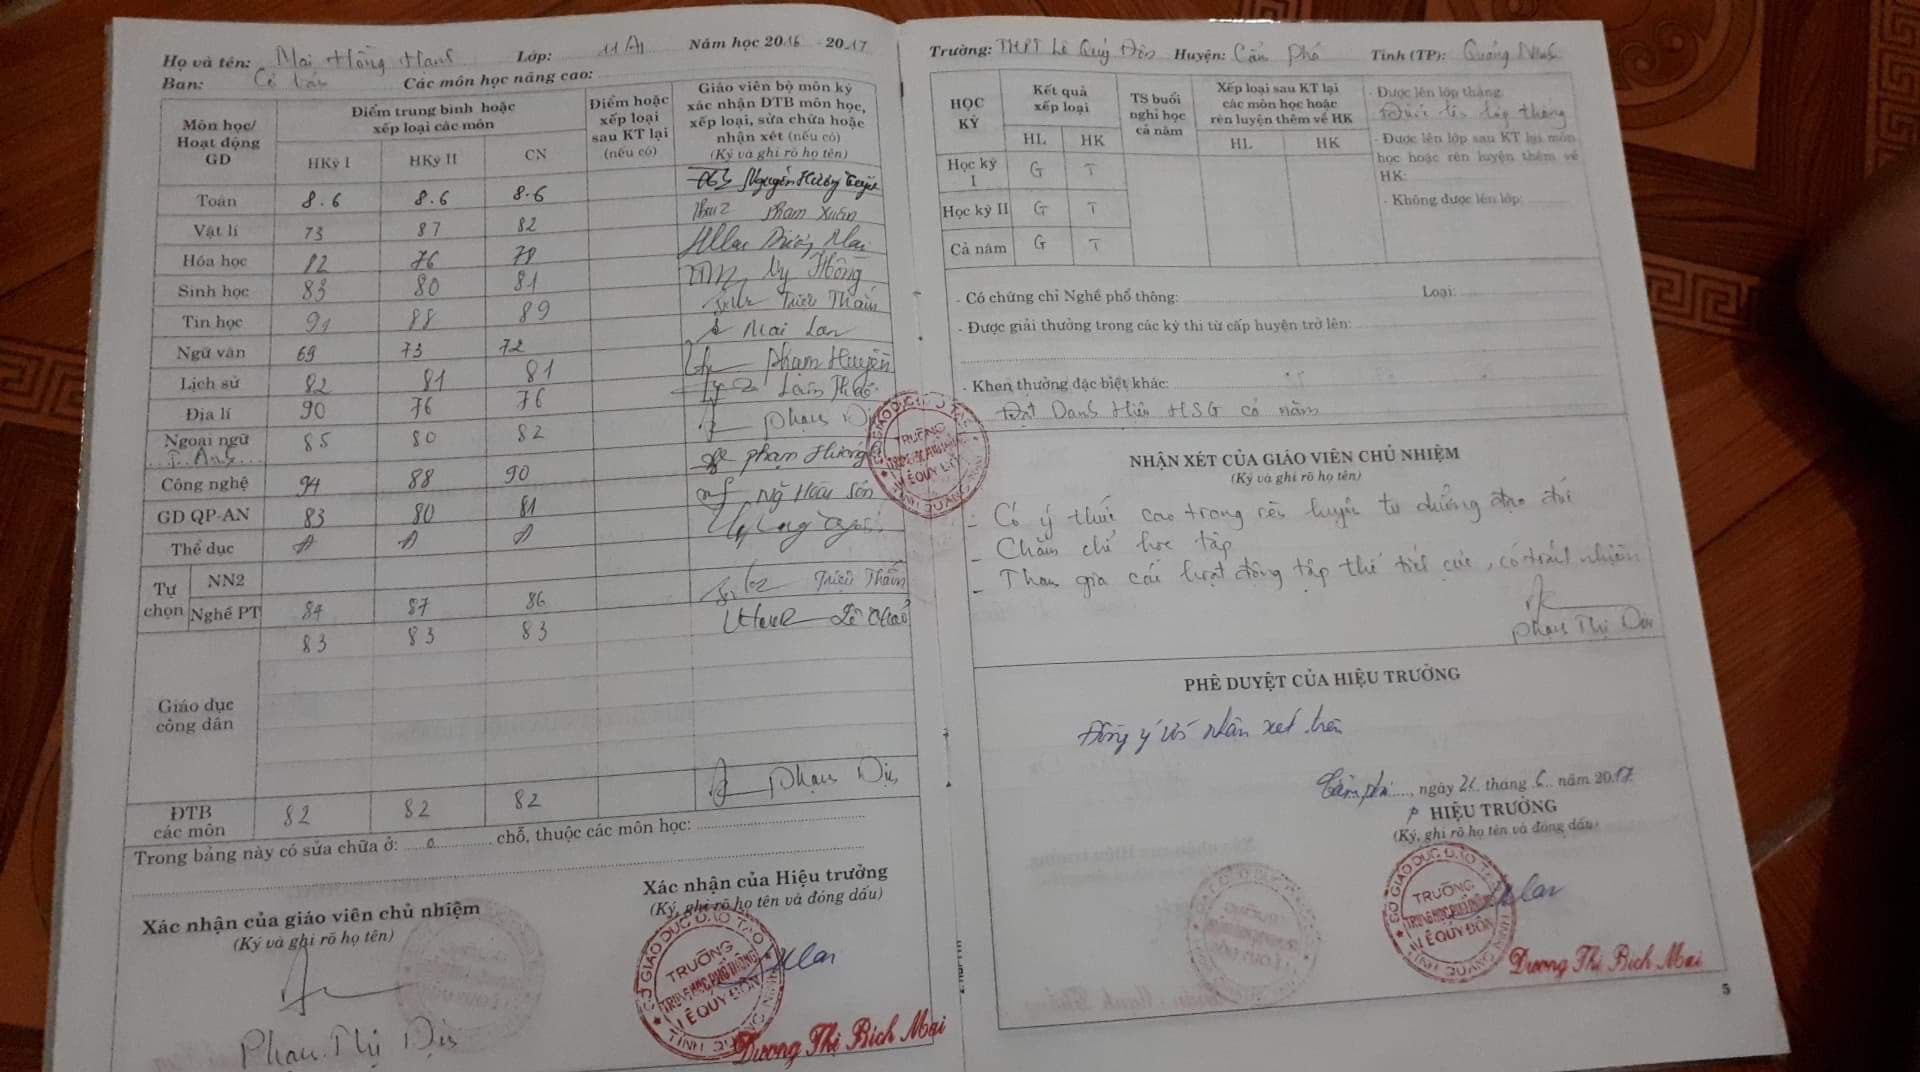 Họ và tên: Mai Hồng Hanh Lớp: 11A1 Năm học 2016 - 2017
Ban: Cơ bản Các môn học nâng cao:
Môn học/ Hoạt động GD
Điểm trung bình hoặc xếp loại các môn
Điểm hoặc xếp loại sau KT lại (nếu có)
Giáo viên bộ môn ký xác nhận ĐTB môn học, xếp loại, sửa chữa hoặc nhận xét (nếu có) (Ký và ghi rõ họ tên)
HKỳ I HKỳ II CN
Toán 8.6 8.6 8.6 Nguyễn Hương
Vật lí 73 87 82 Phạm Xuân
Hóa học 82 76 78 Dương Mai
Sinh học 83 80 81 Vy Hồng
Tin học 91 88 89 Triệu Thắm
Ngữ văn 69 73 72 Mai Lan
Lịch sử 82 81 81 Phạm Huyền
Địa lí 90 76 76
Ngoại ngữ T. Anh 85 80 82 Phan Dịu
Công nghệ 94 88 90 Phạm Hương
GD QP-AN 83 80 81 Ng Hoài Sơn
Thể dục Đ Đ Đ
Tự chọn
NN2
Nghề PT 84 87 86 Triệu Thắm
83 83 83 Lê Thảo
Giáo dục công dân
Phan Dịu
ĐTB các môn 82 82 82
Trong bảng này có sửa chữa ở: 0 chỗ, thuộc các môn học:
Xác nhận của giáo viên chủ nhiệm
(Ký và ghi rõ họ tên)
Phan Thị Dịu
Xác nhận của Hiệu trưởng
(Ký, ghi rõ họ tên và đóng dấu)
SỞ GIÁO DỤC ĐÀO TẠO
TRƯỜNG
TRUNG HỌC PHỔ THÔNG
LÊ QUÝ ĐÔN
Dương Thị Bích Mai
Trường: THPT Lê Quý Đôn Huyện: Cẩm Phả Tỉnh (TP): Quảng Ninh
HỌC KỲ
Kết quả xếp loại
TS buổi nghỉ học cả năm
Xếp loại sau KT lại các môn học hoặc rèn luyện thêm về HK
HL HK HL HK
Học kỳ I G T
Học kỳ II G T
Cả năm G T
- Được lên lớp thẳng:
Được lên lớp thẳng
- Được lên lớp sau KT lại môn học hoặc rèn luyện thêm về HK:
- Không được lên lớp:
- Có chứng chỉ Nghề phổ thông: Loại:
- Được giải thưởng trong các kỳ thi từ cấp huyện trở lên:
- Khen thưởng đặc biệt khác:
Đạt Danh Hiệu HSG cả năm
NHẬN XÉT CỦA GIÁO VIÊN CHỦ NHIỆM
(Ký và ghi rõ họ tên)
- Có ý thức cao trong rèn luyện tu dưỡng đạo đức
- Chăm chỉ học tập
- Tham gia các hoạt động tập thể tích cực, có trách nhiệm
Phan Thị Dịu
PHÊ DUYỆT CỦA HIỆU TRƯỞNG
Đồng ý với nhận xét trên
Cẩm phả, ngày 26 tháng 6 năm 2017
HIỆU TRƯỞNG
(Ký, ghi rõ họ tên và đóng dấu)
SỞ GIÁO DỤC ĐÀO TẠO
TRƯỜNG
TRUNG HỌC PHỔ THÔNG
LÊ QUÝ ĐÔN
Dương Thị Bích Mai
5